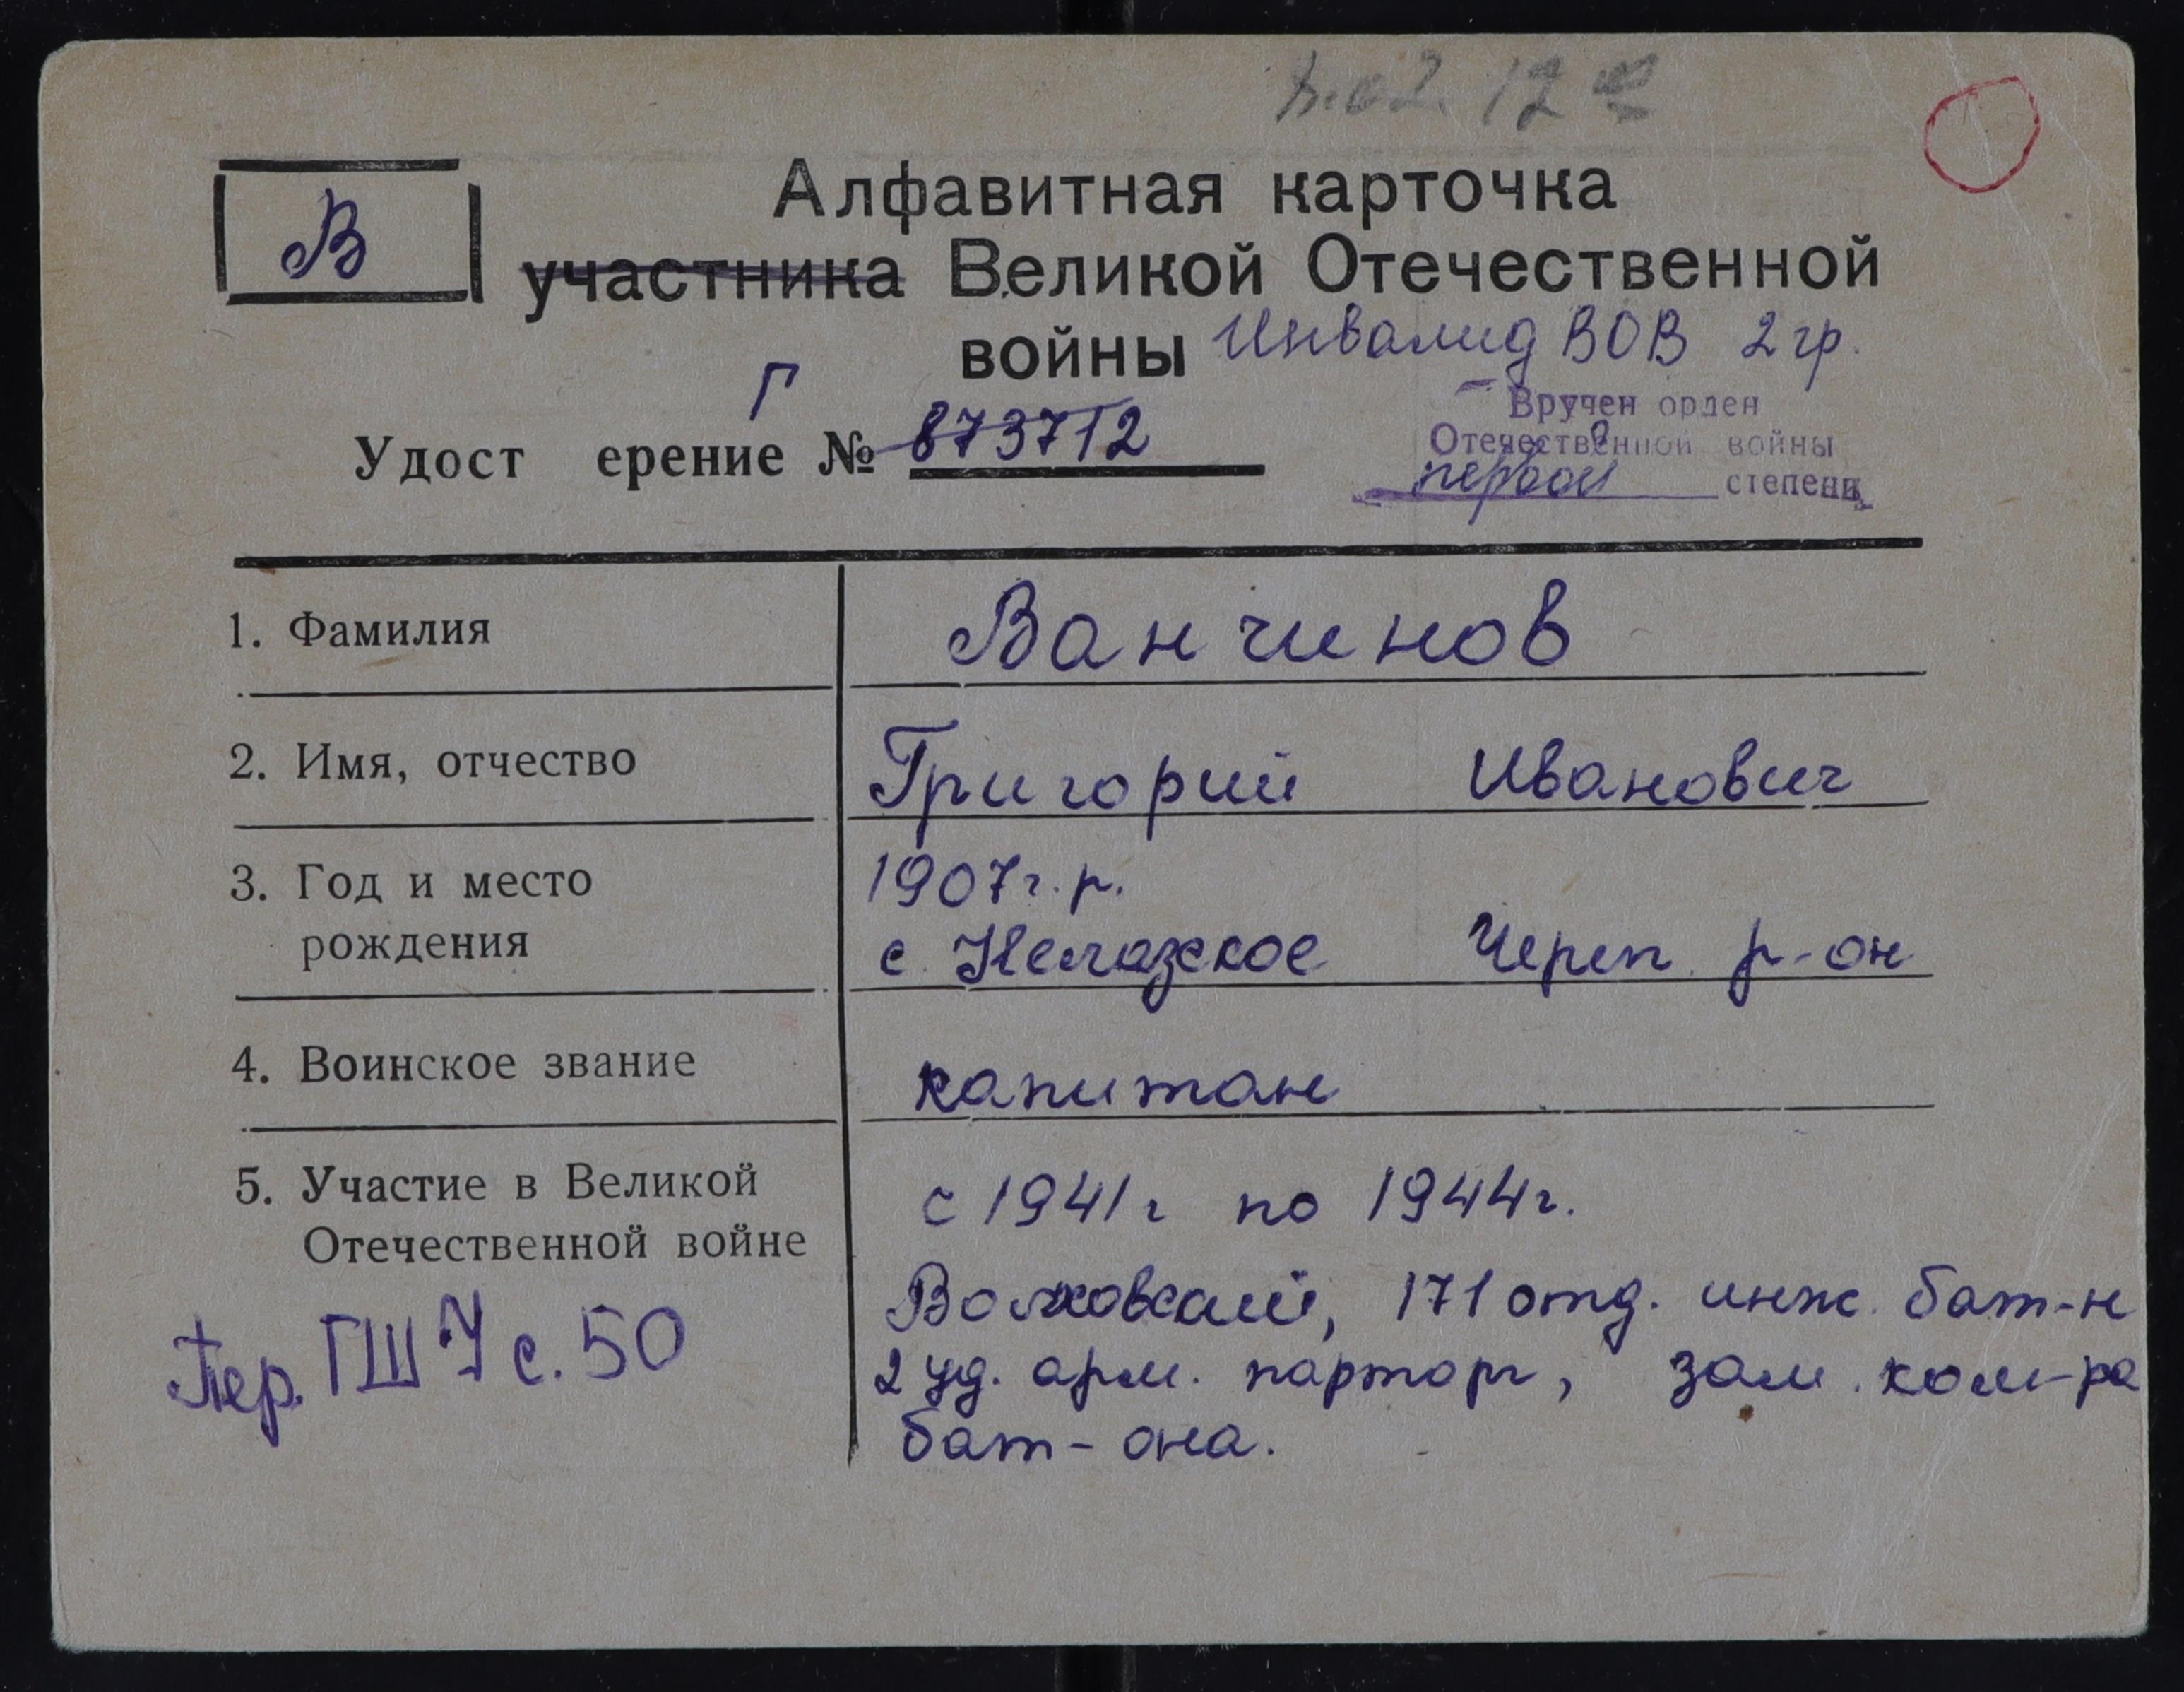 В
Алфавитная карточка
участника Великой Отечественной
войны Инвалид ВОВ 2 гр.
Г
Удост ерение № 873712
Вручен орден
Отечественной войны
первой степени
1. Фамилия
Ванчинов
2. Имя, отчество
Григорий Иванович
3. Год и место
рождения
1907 г. р.
с. Нелазское Череп. р-он
4. Воинское звание
капитан
5. Участие в Великой
Отечественной войне
с 1941 г по 1944 г.
Волховский, 171 отд. инж. бат-н
2 уд. арм. парторг, зам. ком-ра
бат-она.
Пер. ГШ с. 50